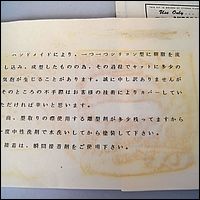 ハンドメイドにより、一つ一つシリコン型に樹脂を流
し込み、成型したものの為、その過程でセットに多少の
気泡が生じることがあります。誠に申し訳ありませんが
そのところの不手際はお客様の技術によりカバーしてい
ただければ幸いと思います。
尚、型取りの際使用する離型剤が多少残ってますから
一度中性洗剤で水洗いしてから塗装して下さい。
接着は、瞬間接着剤をご使用下さい。
Use Only